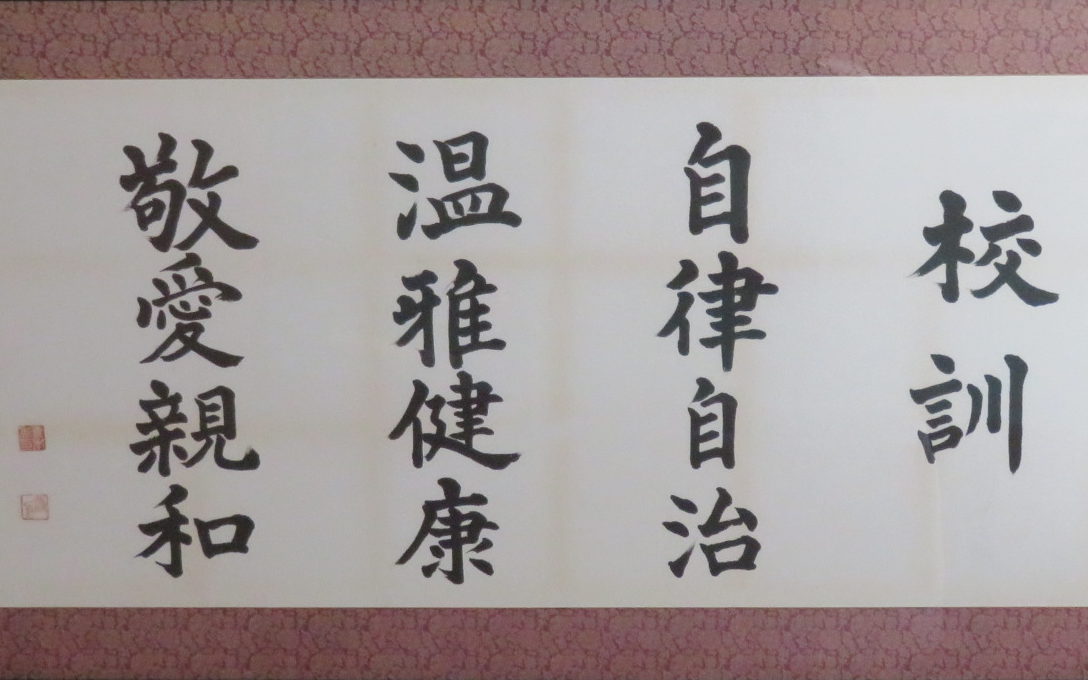 校訓
自律自治
温雅健康
敬愛親和